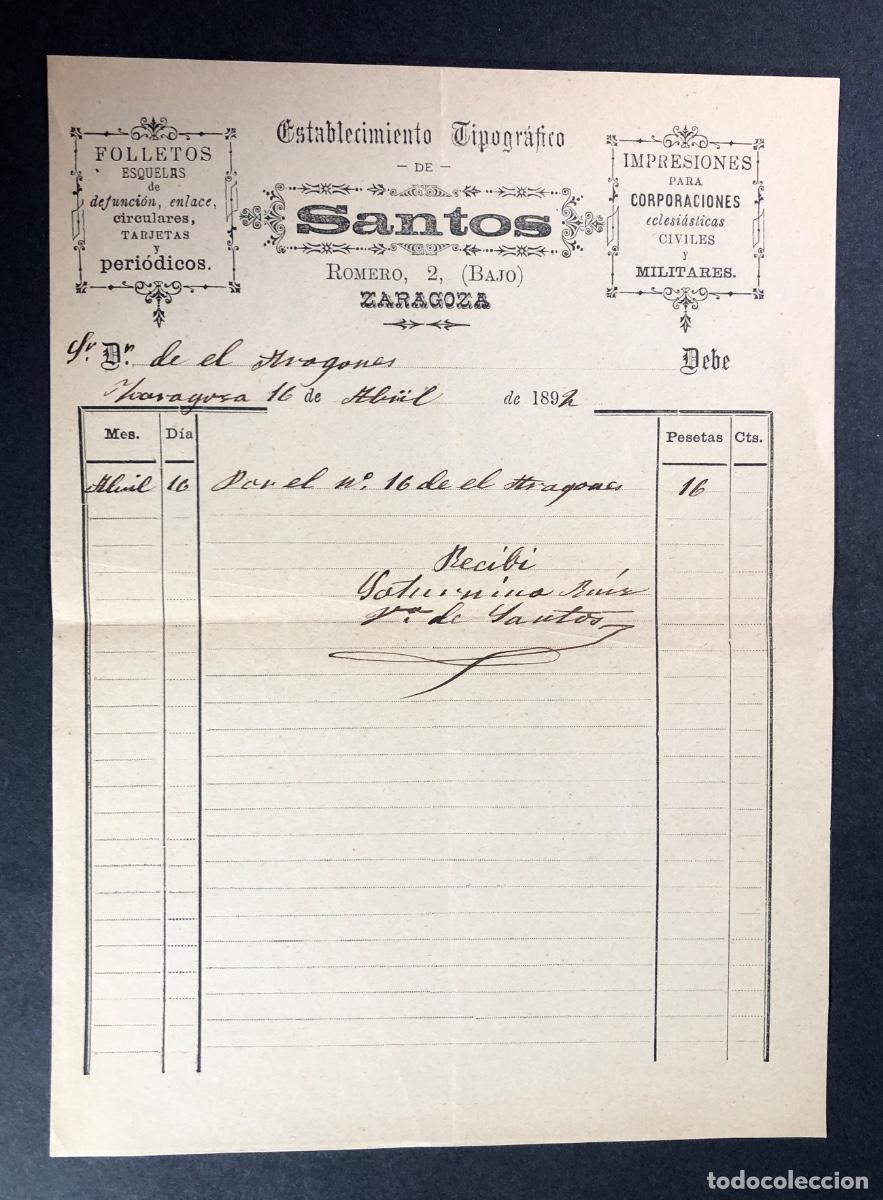 FOLLETOS
ESQUELAS
de
defunción, enlace,
circulares,
TARJETAS
y
periódicos.
Establecimiento Tipográfico
- DE -
Santos
ROMERO, 2, (BAJO)
ZARAGOZA
IMPRESIONES
PARA
CORPORACIONES
eclesiásticas
CIVILES
y
MILITARES.
Sr. Dn. de el Aragones Debe
Zaragoza 16 de Abril de 1892
Mes. Día Pesetas Cts.
Abril 16 Por el nº. 16 de el Aragones 16
Recibi
Saturnina Ruíz
Vda. de Santos
todocoleccion